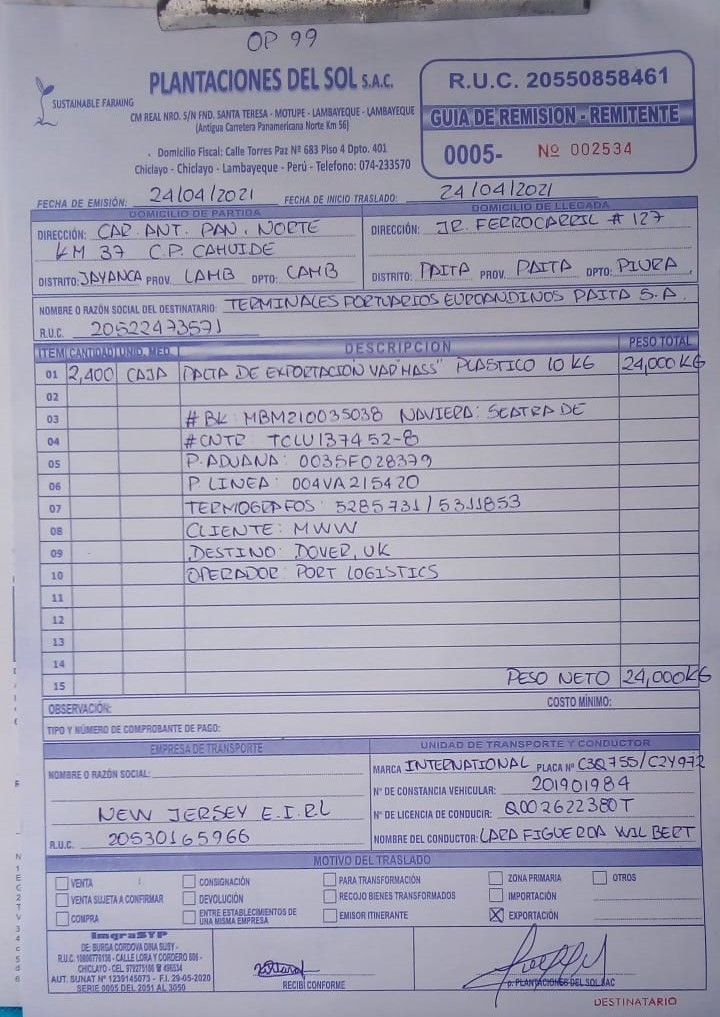 OP 99
SUSTAINABLE FARMING
PLANTACIONES DEL SOL S.A.C.
CM REAL NRO. S/N FND. SANTA TERESA - MOTUPE - LAMBAYEQUE - LAMBAYEQUE
(Antigua Carretera Panamericana Norte Km 56)
Domicilio Fiscal: Calle Torres Paz Nº 683 Piso 4 Dpto. 401
Chiclayo - Chiclayo - Lambayeque - Perú - Telefono: 074-233570
R.U.C. 20550858461
GUIA DE REMISION - REMITENTE
0005- Nº 002534
FECHA DE EMISIÓN: 24/04/2021 FECHA DE INICIO TRASLADO: 24/04/2021
DOMICILIO DE PARTIDA
DIRECCIÓN: CAR. ANT. PAN. NORTE
KM 37 C.P. CAHUIDE
DISTRITO: JAYANCA PROV. LAMB DPTO: LAMB
DOMICILIO DE LLEGADA
DIRECCIÓN: JR. FERROCARRIL # 127
DISTRITO: PAITA PROV. PAITA DPTO: PIURA
NOMBRE O RAZÓN SOCIAL DEL DESTINATARIO: TERMINALES PORTUARIOS EUROANDINOS PAITA S.A.
R.U.C. 20522473571
ITEM CANTIDAD UNID. MED. DESCRIPCION PESO TOTAL
01 2,400 CAJA PALTA DE EXPORTACION VAR "HASS" PLASTICO 10 KG 24,000 KG
02
03 # BK: MBM210035038 NAVIERA: SEATRADE
04 # CNTR: TCLU137452-8
05 P. ADUANA: 0035F028379
06 P. LINEA: 004VA215420
07 TERMOGRAFOS: 5285731/5311853
08 CLIENTE: MWW
09 DESTINO: DOVER, UK
10 OPERADOR: PORT LOGISTICS
11
12
13
14
15 PESO NETO 24,000 KG
OBSERVACIÓN: COSTO MÍNIMO:
TIPO Y NÚMERO DE COMPROBANTE DE PAGO:
EMPRESA DE TRANSPORTE
NOMBRE O RAZÓN SOCIAL:
NEW JERSEY E.I.RL
R.U.C. 20530165966
UNIDAD DE TRANSPORTE Y CONDUCTOR
MARCA INTERNATIONAL PLACA Nº C3Q755/C2Y972
Nº DE CONSTANCIA VEHICULAR: 201901984
Nº DE LICENCIA DE CONDUCIR: Q002622380T
NOMBRE DEL CONDUCTOR: LARA FIGUEROA WILBERT
MOTIVO DEL TRASLADO
VENTA CONSIGNACIÓN PARA TRANSFORMACIÓN ZONA PRIMARIA OTROS
VENTA SUJETA A CONFIRMAR DEVOLUCIÓN RECOJO BIENES TRANSFORMADOS IMPORTACIÓN
COMPRA ENTRE ESTABLECIMIENTOS DE UNA MISMA EMPRESA EMISOR ITINERANTE X EXPORTACIÓN
ImgraSYP
DE: BURGA CORDOVA DINA SUSY -
CALLE LORA Y CORDERO
CHICLAYO - CEL
AUT. SUNAT Nº 1239145073 - F.I. 29-05-2020
SERIE 0005 DEL 2051 AL 3050
RECIBI CONFORME
p. PLANTACIONES DEL SOL SAC
DESTINATARIO